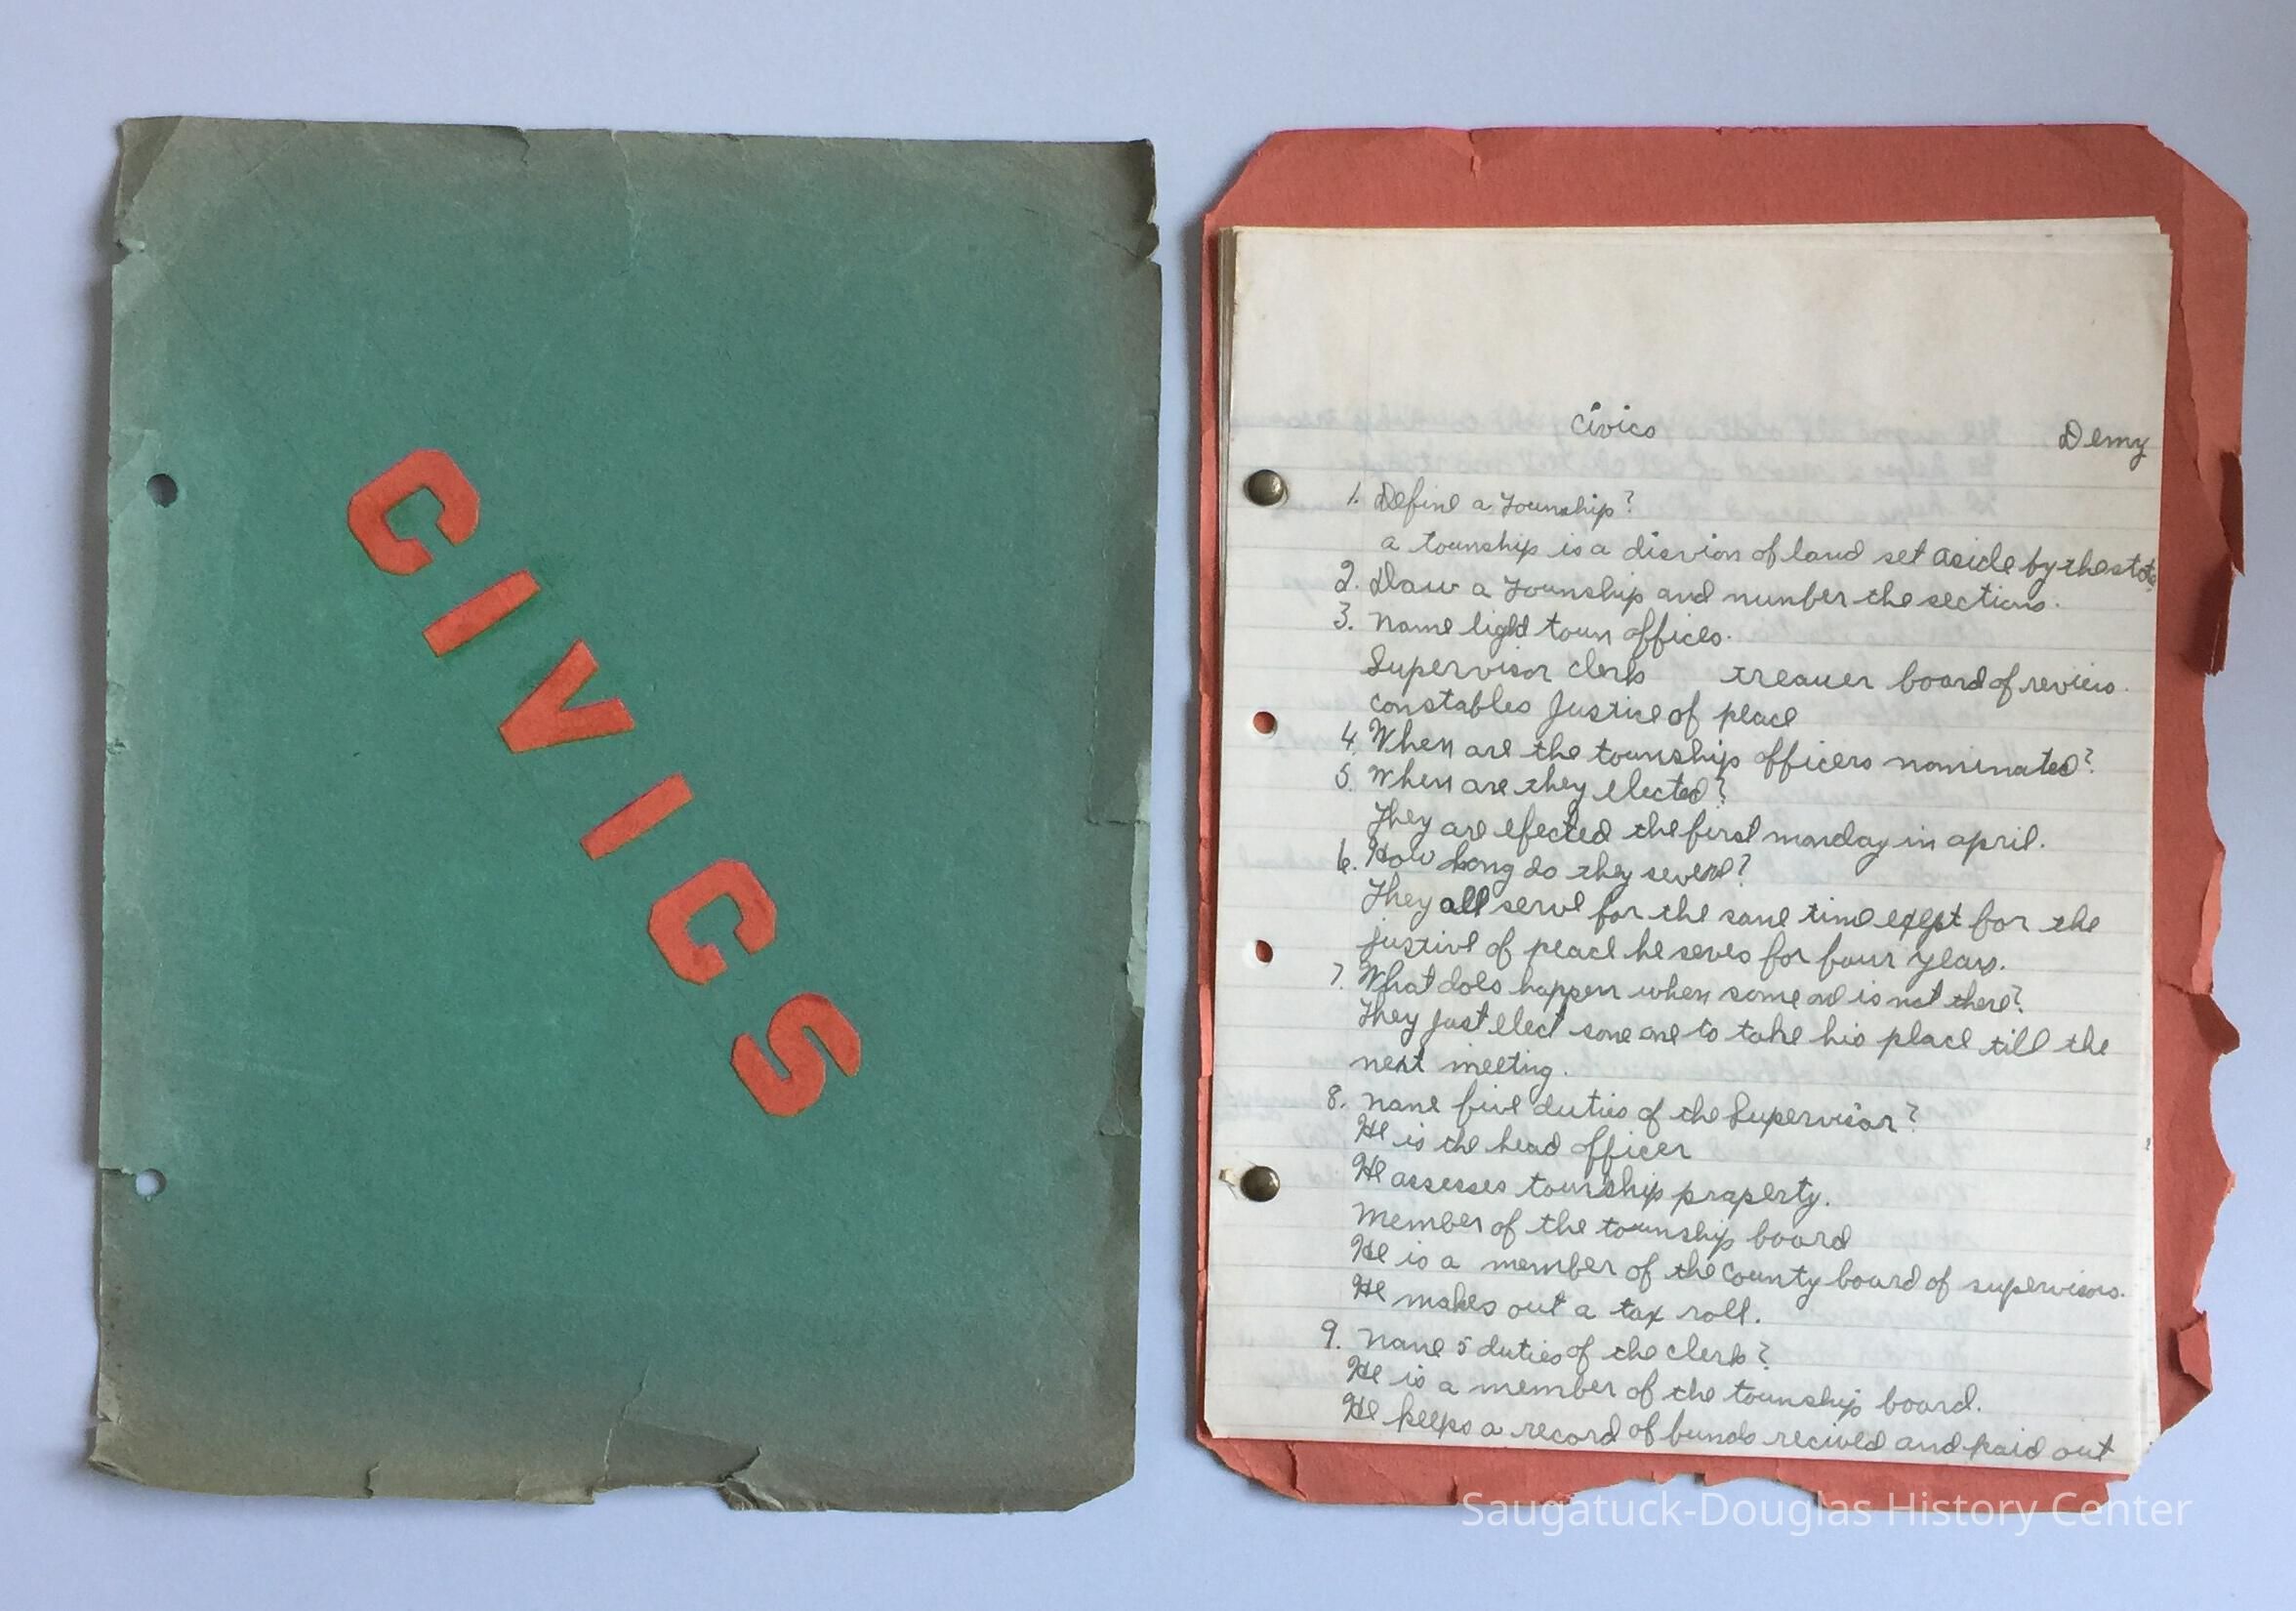 CIVICS
Civics Demy
1. Define a Township?
a township is a disvion of land set aside by the state
2. Daw a Township and number the sections.
3. Name eight town offices.
Supervisor clerk treauer board of reviews.
constables Justice of peace
4. When are the township officers nominated?
5. When are they elected?
They are efected the first monday in april.
6. How long do they severe?
They all serve for the same time exept for the
justive of peace he serves for four years.
7. What does happen when some one is not there?
They just elect some one to take his place till the
next meeting.
8. name five duties of the Supervisor?
He is the head officer
He assesses township property.
Member of the township board
He is a member of the County board of supervisors.
He makes out a tax roll.
9. Name 5 duties of the clerk?
He is a member of the township board.
He keeps a record of funds recived and paid out
Saugatuck-Douglas History Center